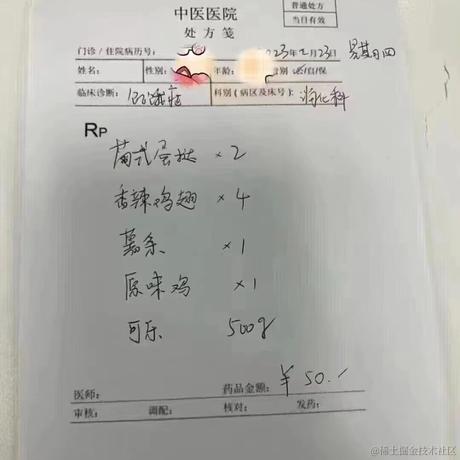 中医医院
处方笺
普通处方
当日有效
门诊/住院病历号: 2023年2月23日 星期四
姓名: 性别: 年龄: 费别:医/自/保
临床诊断: 饥饿症 科别(病区及床号): 消化科
RP
葡式蛋挞 ×2
香辣鸡翅 ×4
薯条 ×1
原味鸡 ×1
可乐 500g
医师: 药品金额: ¥50.-
审核: 调配: 核对: 发药:
@稀土掘金技术社区